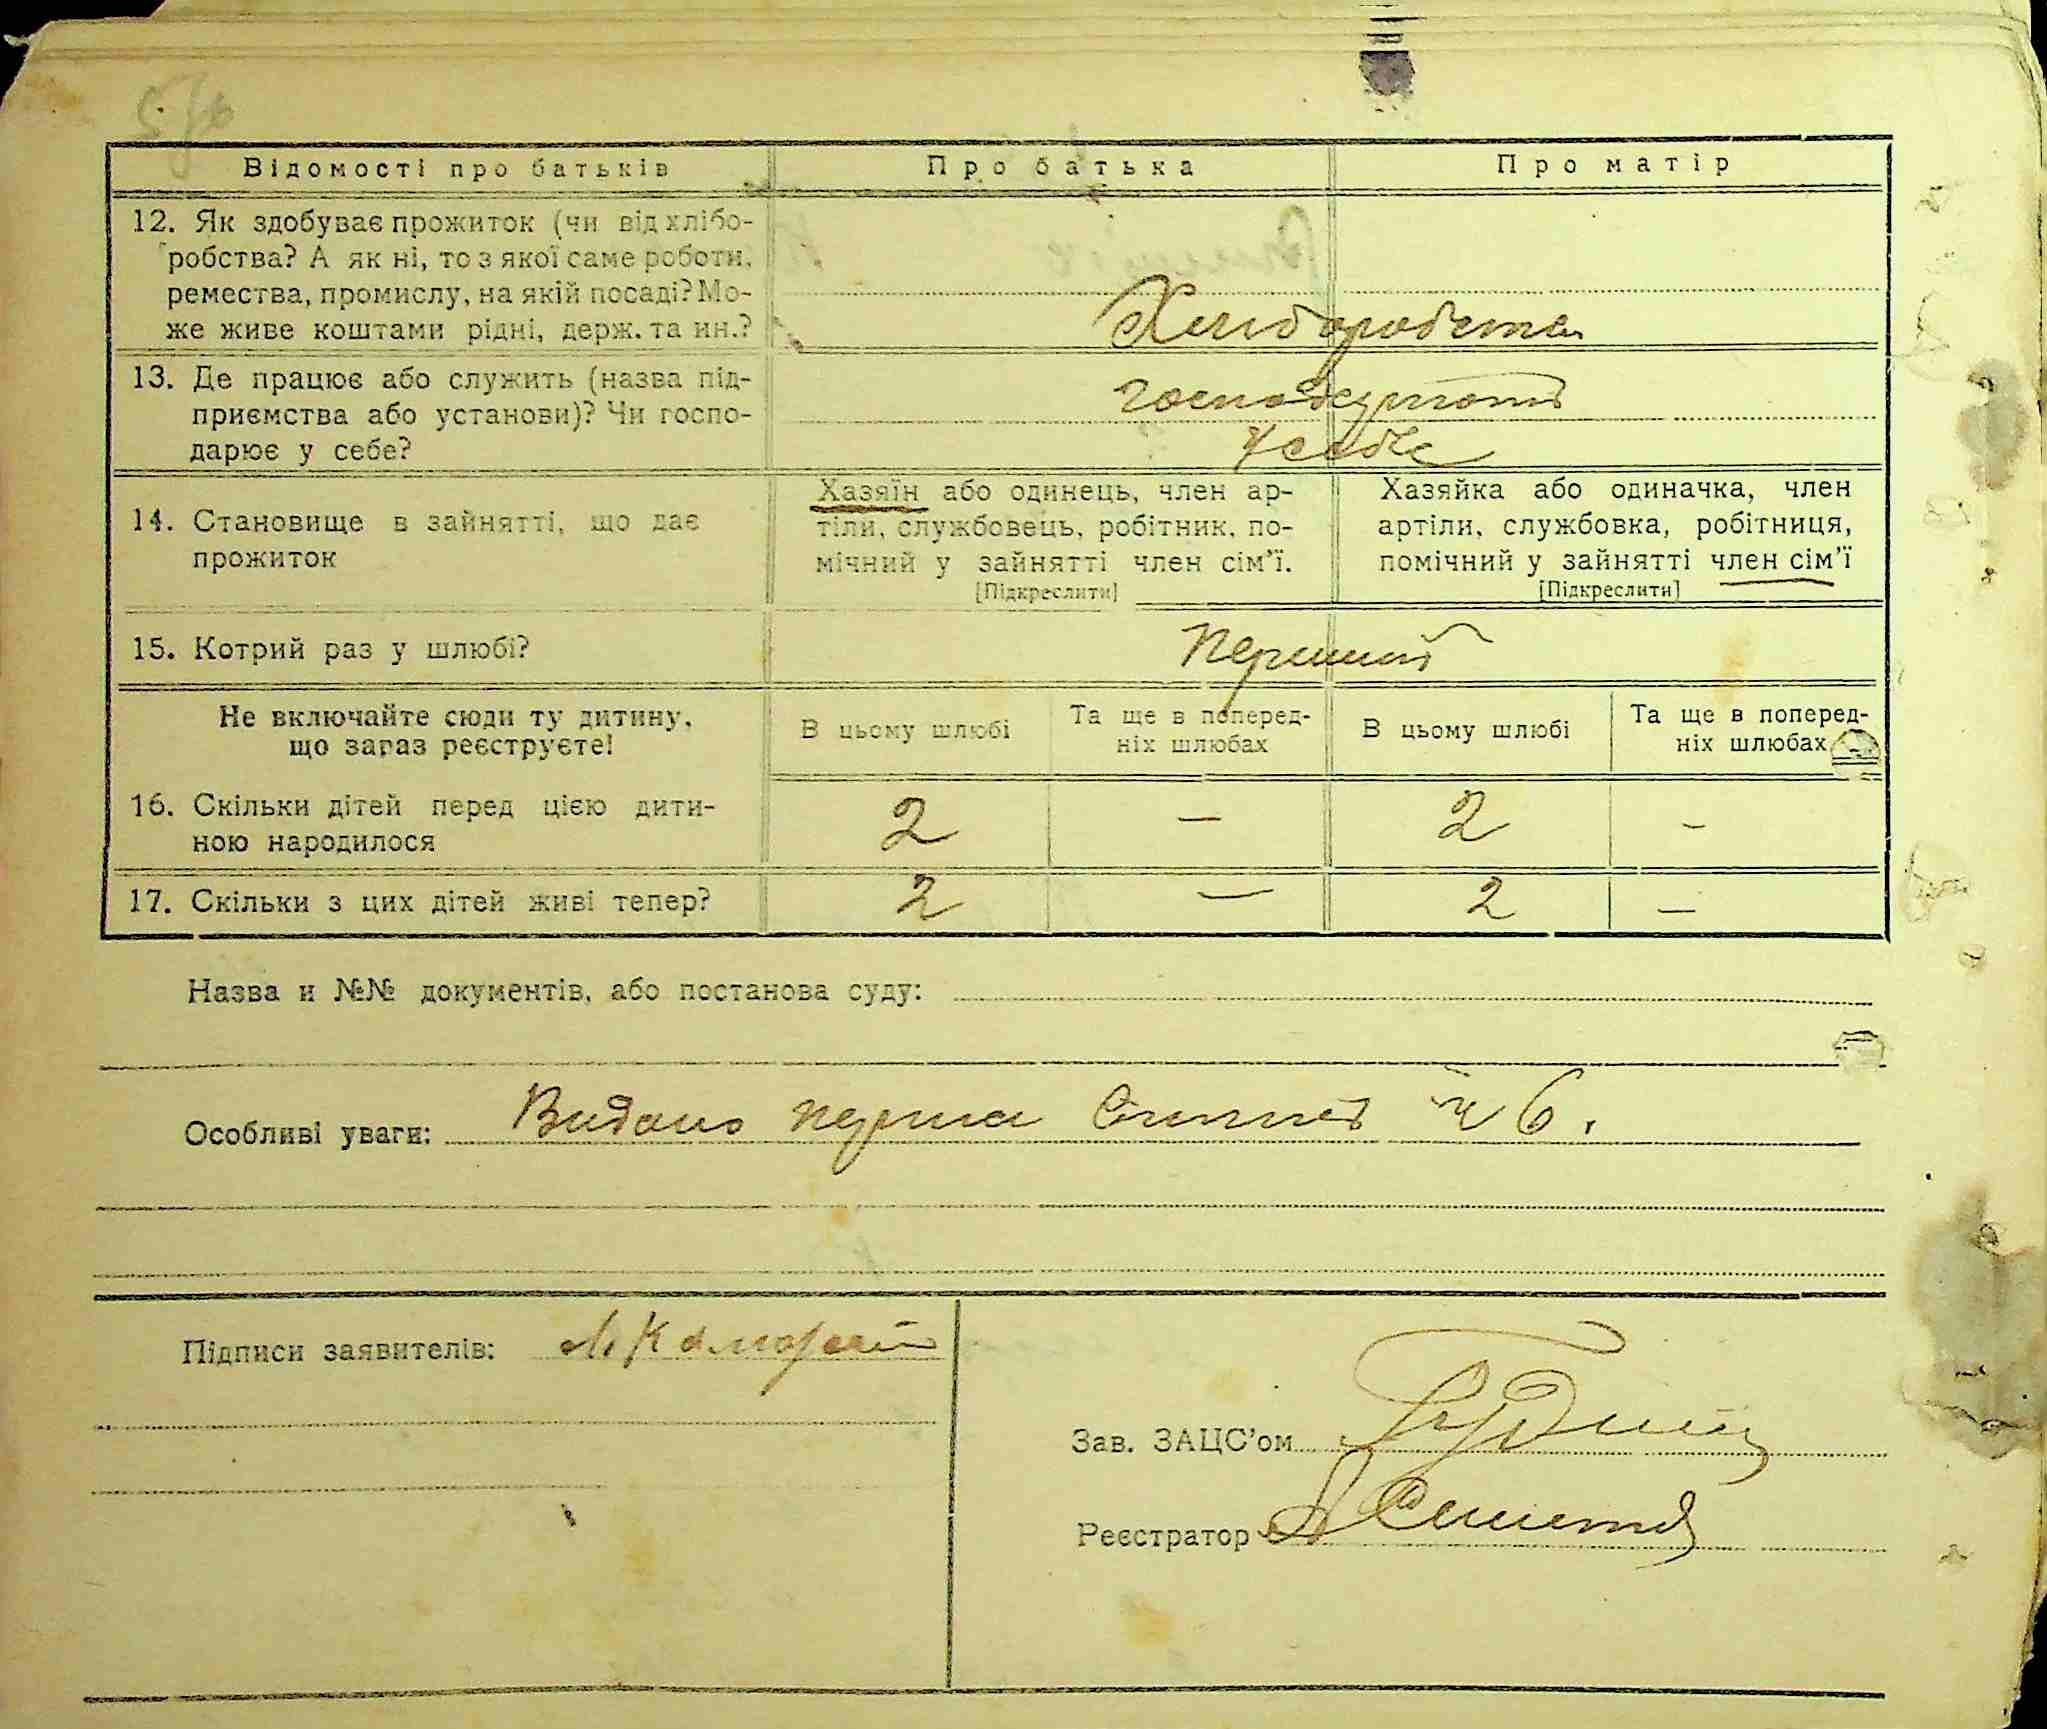 Відомості про батьків
Про батька
Про матір
12. Як здобуває прожиток (чи від хлібо-
робства? А як ні, то з якої саме роботи,
ремества, промислу, на якій посаді? Мо-
же живе коштами рідні, держ. та ин.?
Хліборобства
13. Де працює або служить (назва під-
приємства або установи)? Чи госпо-
дарює у себе?
у себе
14. Становище в зайнятті, що дає
прожиток
Хазяїн або одинець, член ар-
тіли, службовець, робітник, по-
мічний у зайнятті член сім'ї.
[Підкреслити]
Хазяйка або одиначка, член
артіли, службовка, робітниця,
помічний у зайнятті член сім'ї
[Підкреслити]
15. Котрий раз у шлюбі?
Перший
Не включайте сюди ту дитину,
що зараз реєструєте!
В цьому шлюбі
Та ще в поперед-
ніх шлюбах
В цьому шлюбі
Та ще в поперед-
ніх шлюбах
16. Скільки дітей перед цією дити-
ною народилося
2 — 2 —
17. Скільки з цих дітей живі тепер?
2 — 2 —
Назва и №№ документів, або постанова суду:
Особливі уваги: Видано 6.
Підписи заявителів:
Зав. ЗАЦС'ом
Реєстратор